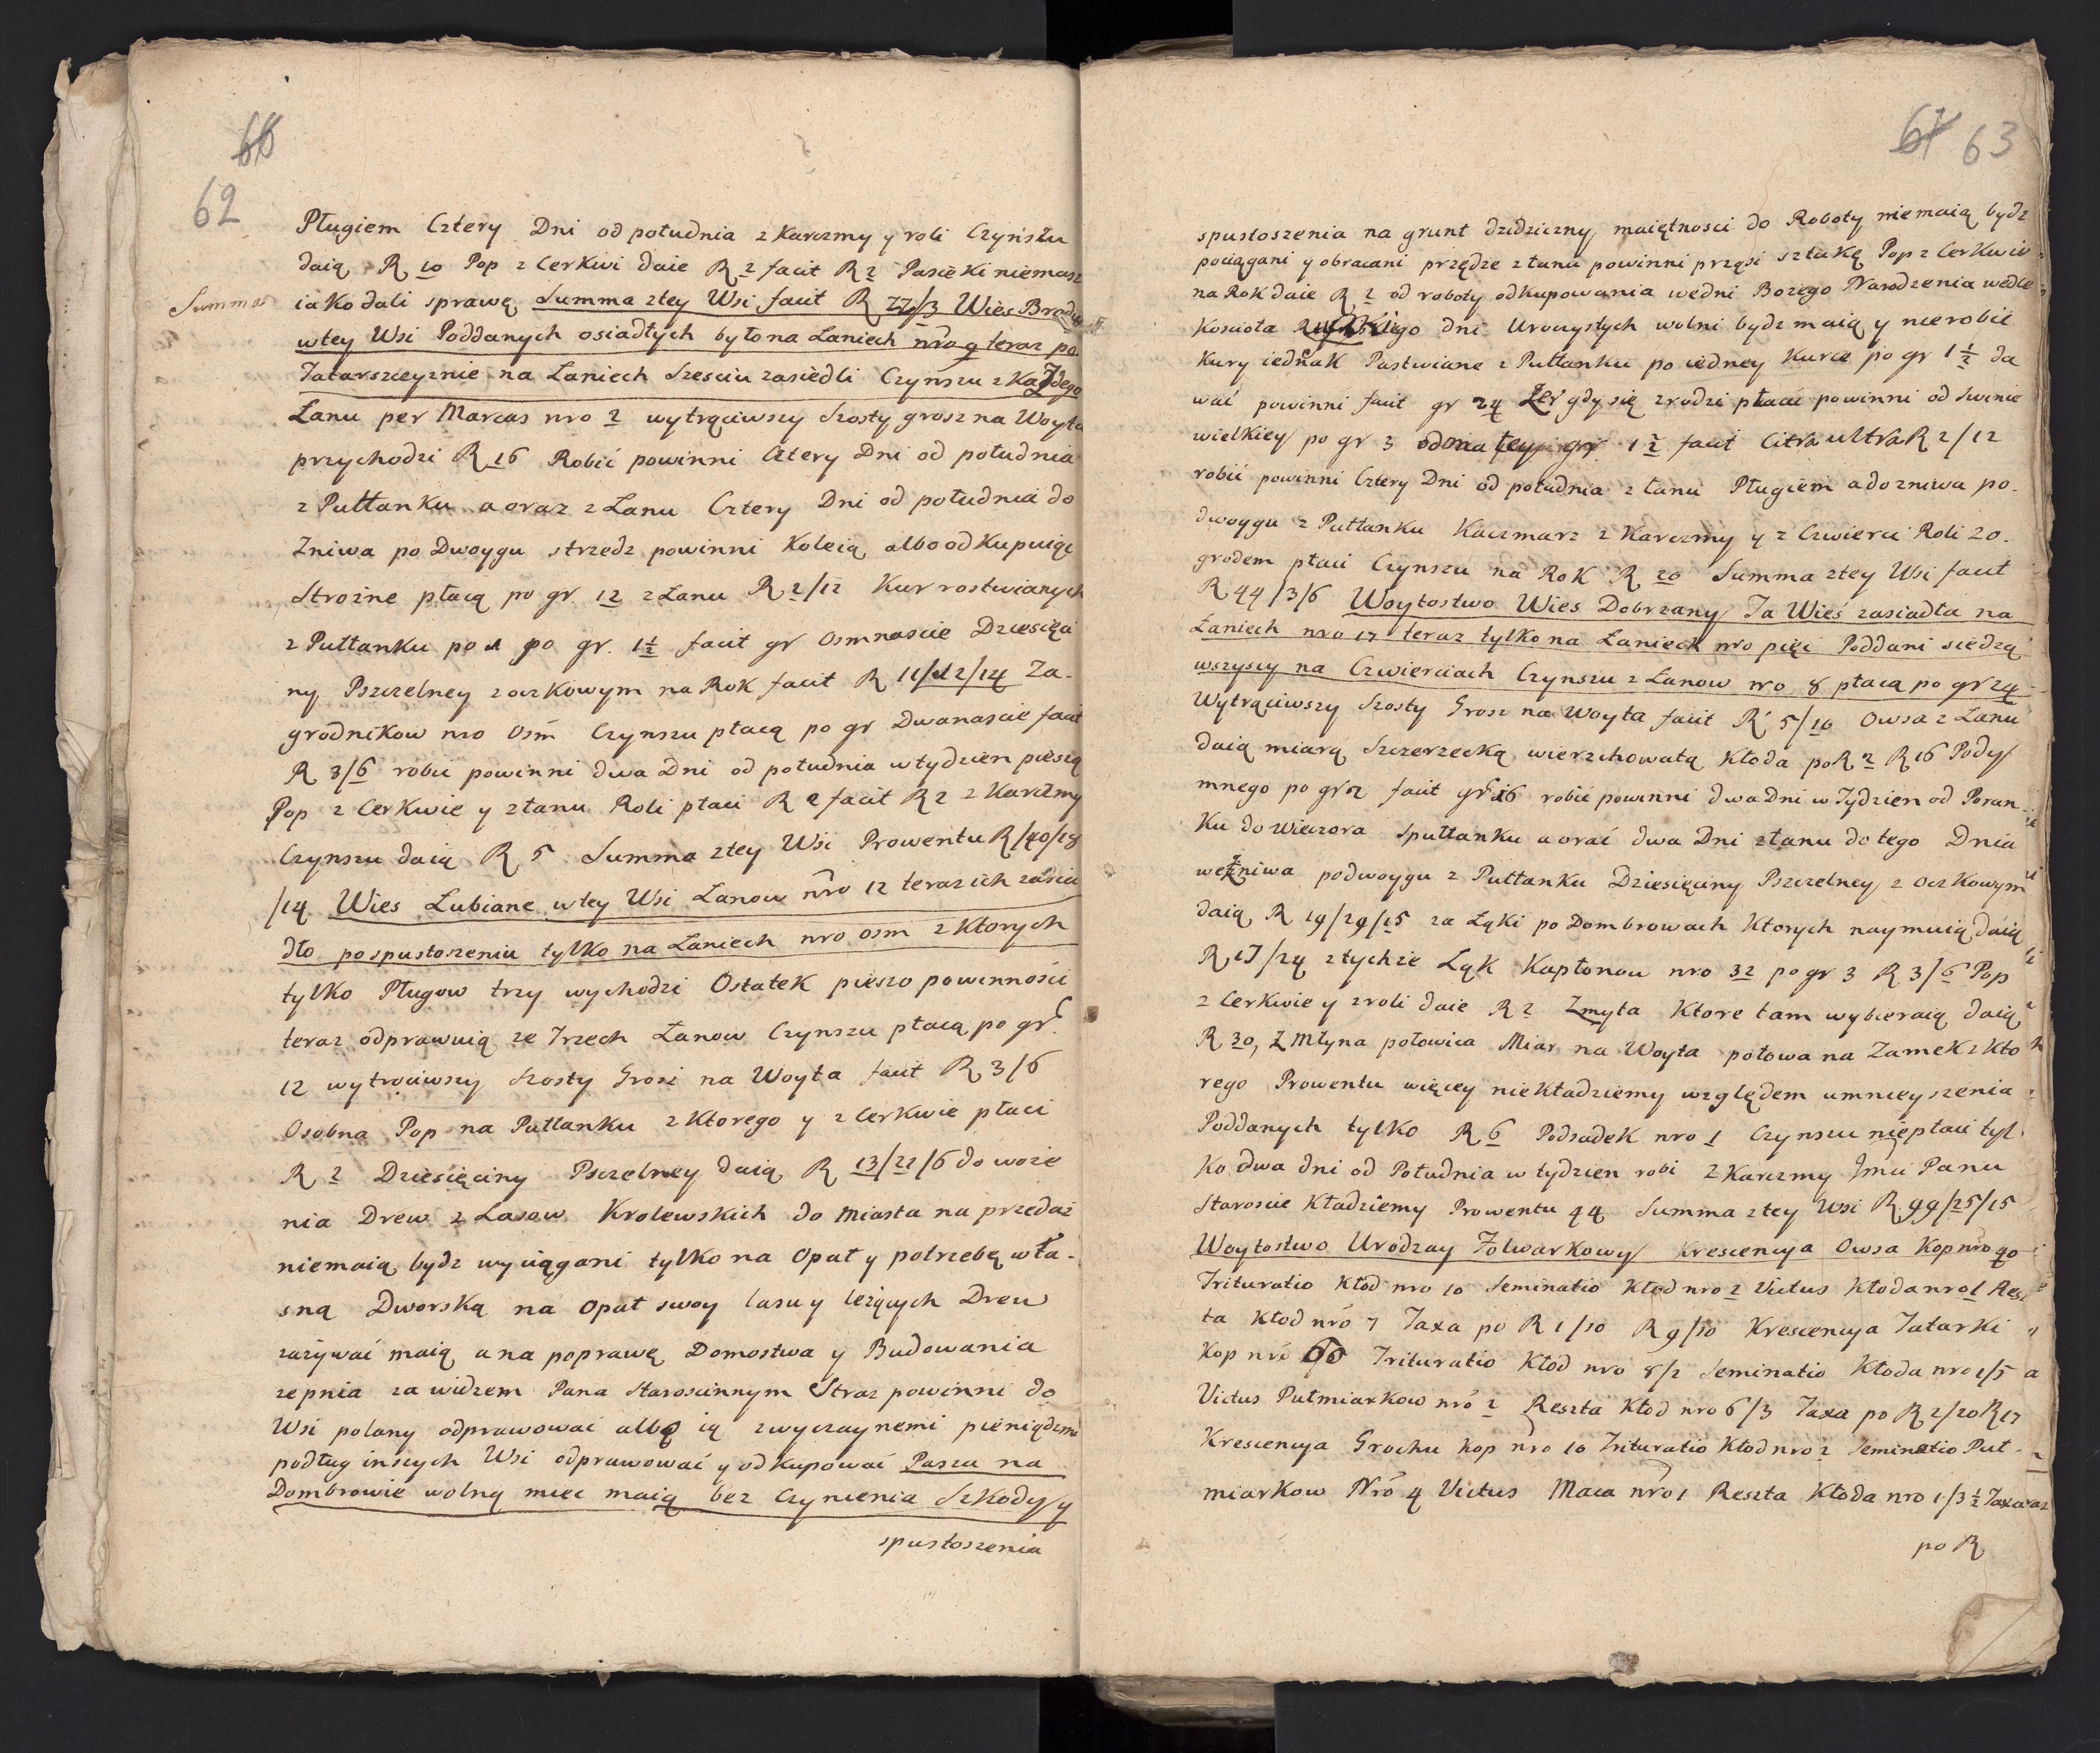 66
62
Pługiem Cztery Dni od południa z Karczmy y roli Czynszu
daią R 10 Pop z Cerkwi daie R 2 facit R 2 Pasieki niemasz
Summa
iako dali sprawę Summa ztey Wsi facit R 22/3 Wies Brody
wtey Wsi Poddanych osiadłych było na Laniech nro 9 teraz po
Tatarszczyznie na Laniech Szesciu zasiedli Czynszu z Każdego
Lanu per Marcas nro 2 wytrąciwszy Szosty grosz na Woyta
przychodzi R 16 Robić powinni Cztery Dni od południa
z Pułłanku a oraz z Lanu Cztery Dni od południa do
Zniwa po Dwoygu strzedz powinni Koleią albo odkupuiąc
Strozne płacą po gr 12 z Lanu R 2/12 Kur rostwianych
z Pułłanku po 1 po gr. 1½ facit gr Osmnascie Dziesięci
ny Pszczelney z oczkowym na Rok facit R 11/12/14 Za-
grodnikow nro Osm Czynszu płacą po gr Dwanascie facit
R 3/6 robić powinni dwa Dni od południa w tydzien pieszą
Pop z Cerkwie y z łanu Roli płaci R 2 facit R 2 z Karczmy
Czynszu daią R 5 Summa ztey Wsi Prowentu R/40/18
/14 Wies Lubiane wtey Wsi Lanow nro 12 teraz ich zasia
dło po spustoszeniu tylko na Laniech nro osm z Ktorych
tylko Pługow trzy wychodzi Ostatek pieszo powinności
teraz odprawuią ze Trzech Łanow Czynszu płacą po gr.
12 wytrąciwszy Szosty Grosz na Woyta facit R 3/6
Osobna Pop na Pułłanku z Ktorego y z Cerkwie płaci
R 2 Dziesięciny Pszczelney daią R 13/22/6 do woże
nia Drew z Lasow Krolewskich do Miasta na przedaż
niemaią bydz wyciągani tylko na Opał y potrzebę wła-
sną Dworską na Opał swoy lasu y leżących Drew
zażywać maią a na poprawę Domostwa y Budowania
zepnia za widzem Pana Staroscinnym Straz powinni do
Wsi polany odprawować albo ią zwyczaynemi pieniądzmi
podług inszych Wsi odprawować y odkupować Paszu na
Dombrowie wolną miec maią bez Czynienia Szkody y
spustoszenia
67 63
spustoszenia na grunt dziedziczny maiętnosci do Roboty niemaią bydz
pociągani y obracani przędze z łanu powinni prząsc sztukę Pop z Cerkwie
na Rok daie R 2 od roboty odkupowania wedni Bożego Narodzenia wedle
Kosciola dni Uroczystych wolni bydz maią y nierobic
Kury iednak Pastwiane z Pułłanku po iedney Kurce po gr 1½ da
wać powinni facit gr 24 Zer gdy się zrodzi płacić powinni od Swinie
wielkiey po gr 3 od małey gr 1½ facit Citra ultra R 2/12
robić powinni Cztery Dni od południa z łanu Pługiem a do zniwa po-
dwoygu z Pułłanku Kaczmarz z Karczmy y z Czwierci Roli zo-
grodem płaci Czynszu na Rok R 20 Summa ztey Wsi facit
R 44/3/6 Woytostwo Wies Dobrzany Ta Wieś zasiadła na
Laniech nro 17 teraz tylko na Laniech nro pięc Poddani siedzą
wszyscy na Czwierciach Czynszu z Lanow nro 8 płacą po gr 24
Wytrąciwszy Szosty Grosz na Woyta facit R 5/10 Owsa z Lanu
daią miarą Szczerzecką wierzchowatą Kłoda po R 2 R 16 Pody
mnego po gr 2 facit gr 16 robić powinni dwa Dni w Tydzien od Poran-
Ku do wieczora Spułłanku a orać dwa Dni złanu do tego Dnia
weżniwa podwoygu z Pułłanku Dziesięciny Pszczelney z oczkowym
daią R 19/29/15 za Łąki po Dombrowach Ktorych naymuią daią
R 17/24 z tychże Ląk Kapłonow nro 32 po gr 3 R 3/6 Pop
z Cerkwie y zroli daie R 2 Zmyta Ktore tam wybieraią daią
R 30, Z Młyna połowica Miar na Woyta połowa na Zamek z Kto
rego Prowentu więcey niekładziemy względem umnieyszenia
Poddanych tylko R 6 Podsadek nro 1 Czynszu niepłaci tyl-
ko dwa dni od Południa w tydzien robi z Karczmy Jmci Panu
Staroscie Kładziemy Prowentu 44 Summa ztey Wsi R 99/25/15
Woytostwo Urodzay Folwarkowy Krescencya Owsa Kop nro 40
Trituratio Kłod nro 10 Seminatio Kłod nro 2 Victus Kłoda nro 1 Resz
ta Kłod nro 7 Taxa po R 1/10 R 9/10 Krescencya Tatarki
Kop nro 60 Trituratio Kłod nro 8/2 Seminatio Kłoda nro 1/5
Victus Pułmiarkow nro 2 Reszta Kłod nro 6/3 Taxa po R 2/20 R 17
Krescencya Grochu kop nro 10 Trituratio Kłod nro 2 Seminatio Puł-
miarkow Nro 4 Victus Maca nro 1 Reszta Kłoda nro 1/3½ Taxa
po R